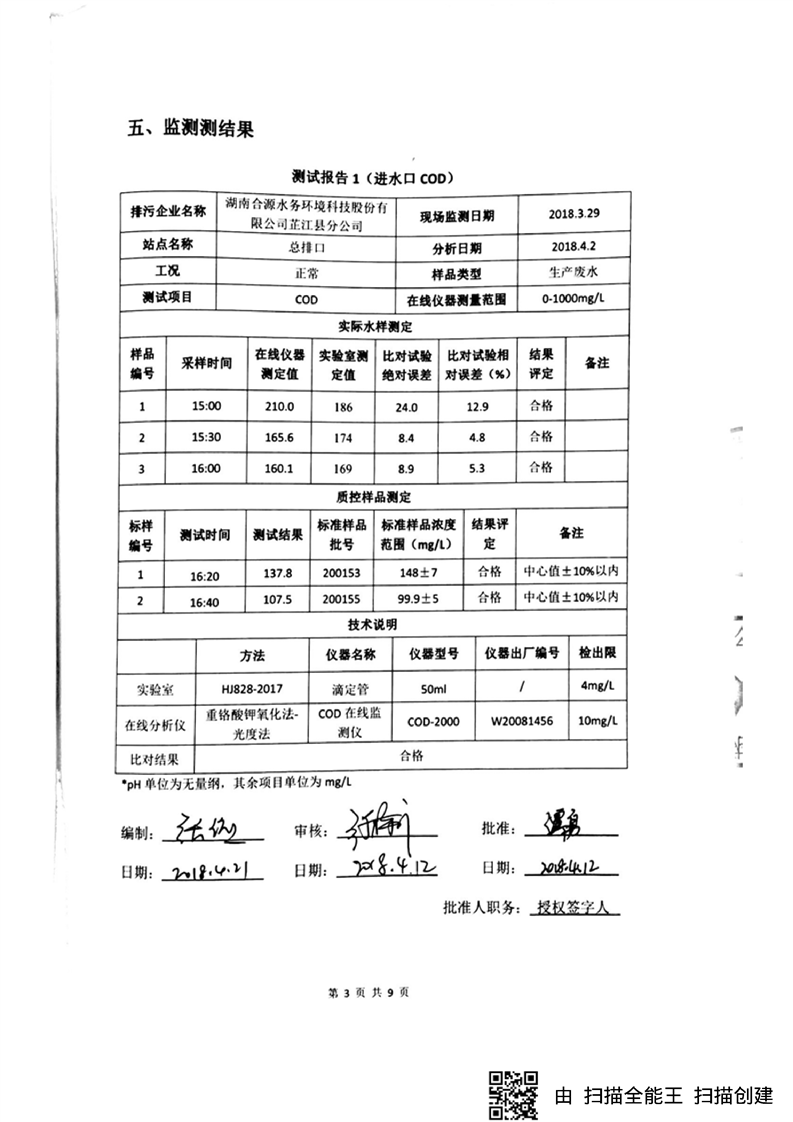 五、监测测结果
测试报告 1（进水口 COD）
排污企业名称 湖南合源水务环境科技股份有限公司芷江县分公司 现场监测日期 2018.3.29
站点名称 总排口 分析日期 2018.4.2
工况 正常 样品类型 生产废水
测试项目 COD 在线仪器测量范围 0-1000mg/L
实际水样测定
样品编号 采样时间 在线仪器测定值 实验室测定值 比对试验绝对误差 比对试验相对误差（%） 结果评定 备注
1 15:00 210.0 186 24.0 12.9 合格
2 15:30 165.6 174 8.4 4.8 合格
3 16:00 160.1 169 8.9 5.3 合格
质控样品测定
标样编号 测试时间 测试结果 标准样品批号 标准样品浓度范围（mg/L） 结果评定 备注
1 16:20 137.8 200153 148±7 合格 中心值±10%以内
2 16:40 107.5 200155 99.9±5 合格 中心值±10%以内
技术说明
方法 仪器名称 仪器型号 仪器出厂编号 检出限
实验室 HJ828-2017 滴定管 50ml / 4mg/L
在线分析仪 重铬酸钾氧化法-光度法 COD 在线监测仪 COD-2000 W20081456 10mg/L
比对结果 合格
*pH 单位为无量纲，其余项目单位为 mg/L
编制： 审核： 批准：
日期：2018.4.21 日期：2018.4.12 日期：2018.4.12
批准人职务：授权签字人
第 3 页 共 9 页
由 扫描全能王 扫描创建